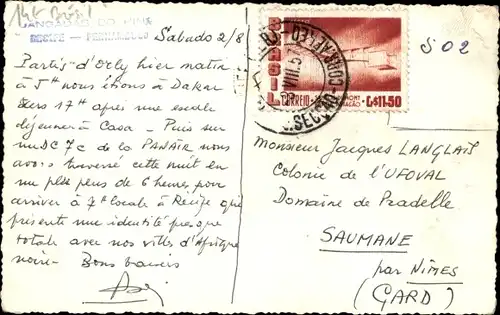 JANGADEIRO DO PINA
RECIFE - PERNAMBUCO
Sabado 2/8
Partis d'Orly hier matin
à 5h nous étions à Dakar
vers 17h après une escale
déjeuner à Casa - Puis sur
un DC 7c de la PANAIR nous
avons traversé cette nuit en
un peu plus de 6 heures pour
arriver à 7h locale à Recife que
présente une identité presque
totale avec nos villes d'Afrique
noire - Bons baisers
BRASIL
CORREIO
Cr$11,50
VIII.5
SECÇÃO
S 02
Monsieur Jacques LANGLAIS
Colonie de l'UFOVAL
Domaine de Pradelle
SAUMANE
par NÎMES
(GARD)